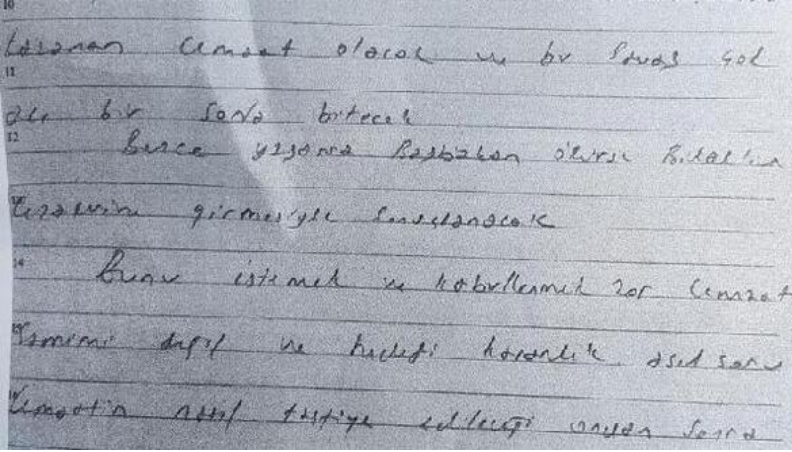 10
kazanan Cemaat olacak ve bu savaş çok
11
acı bir sonla bitecek
12
Bunca yaşanna Başbakan olursa Bilal'in
cezaevine girmesiyle sonuçlanacak
14
Bunu istemek ve kabullenmek zor Cemaat
samimi değil ve hedefi karanlık asıl soru
Cemaatin nasıl tasfiye edileceği ondan sonra